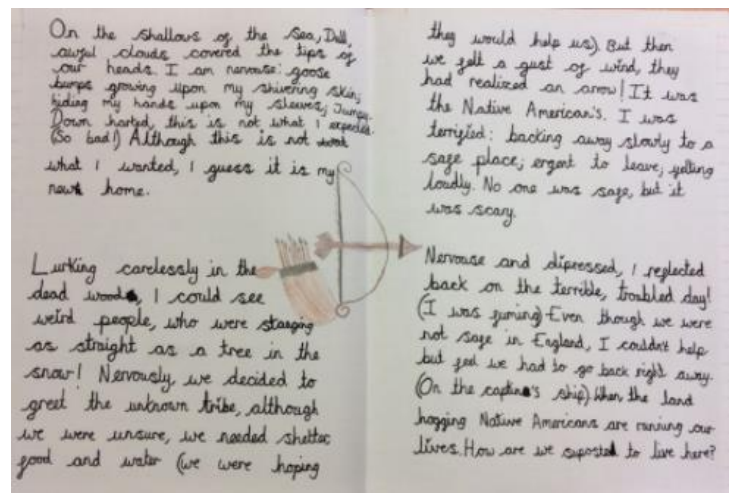 On the shallows of the sea, Dull,
awful clouds covered the tips of
our heads. I am nervouse: goose
bumps growing upon my shivering skin;
hiding my hands upon my sleeves; Jumpy.
Down harted, this is not what I expected.
(So bad!) Although this is not
what I wanted, I guess it is my
new home.
Lurking carelessly in the
dead woods, I could see
weird people, who were standing
as straight as a tree in the
snow! Nervously, we decided to
greet the unknown tribe, although
we were unsure, we needed shelter,
food and water (we were hoping
they would help us). But then
we felt a gust of wind, they
had realized an arrow! It was
the Native American's. I was
terrified: backing away slowly to a
safe place; ergent to leave; yelling
loudly. No one was safe, but it
was scary.
Nervouse and dipressed, I reflected
back on the terrible, troubled day!
(I was fuming) Even though we were
not safe in England, I couldn't help
but feel we had to go back right away.
(On the captin's ship). When the land
hogging Native Americans are running our
lives. How are we suposted to live here?